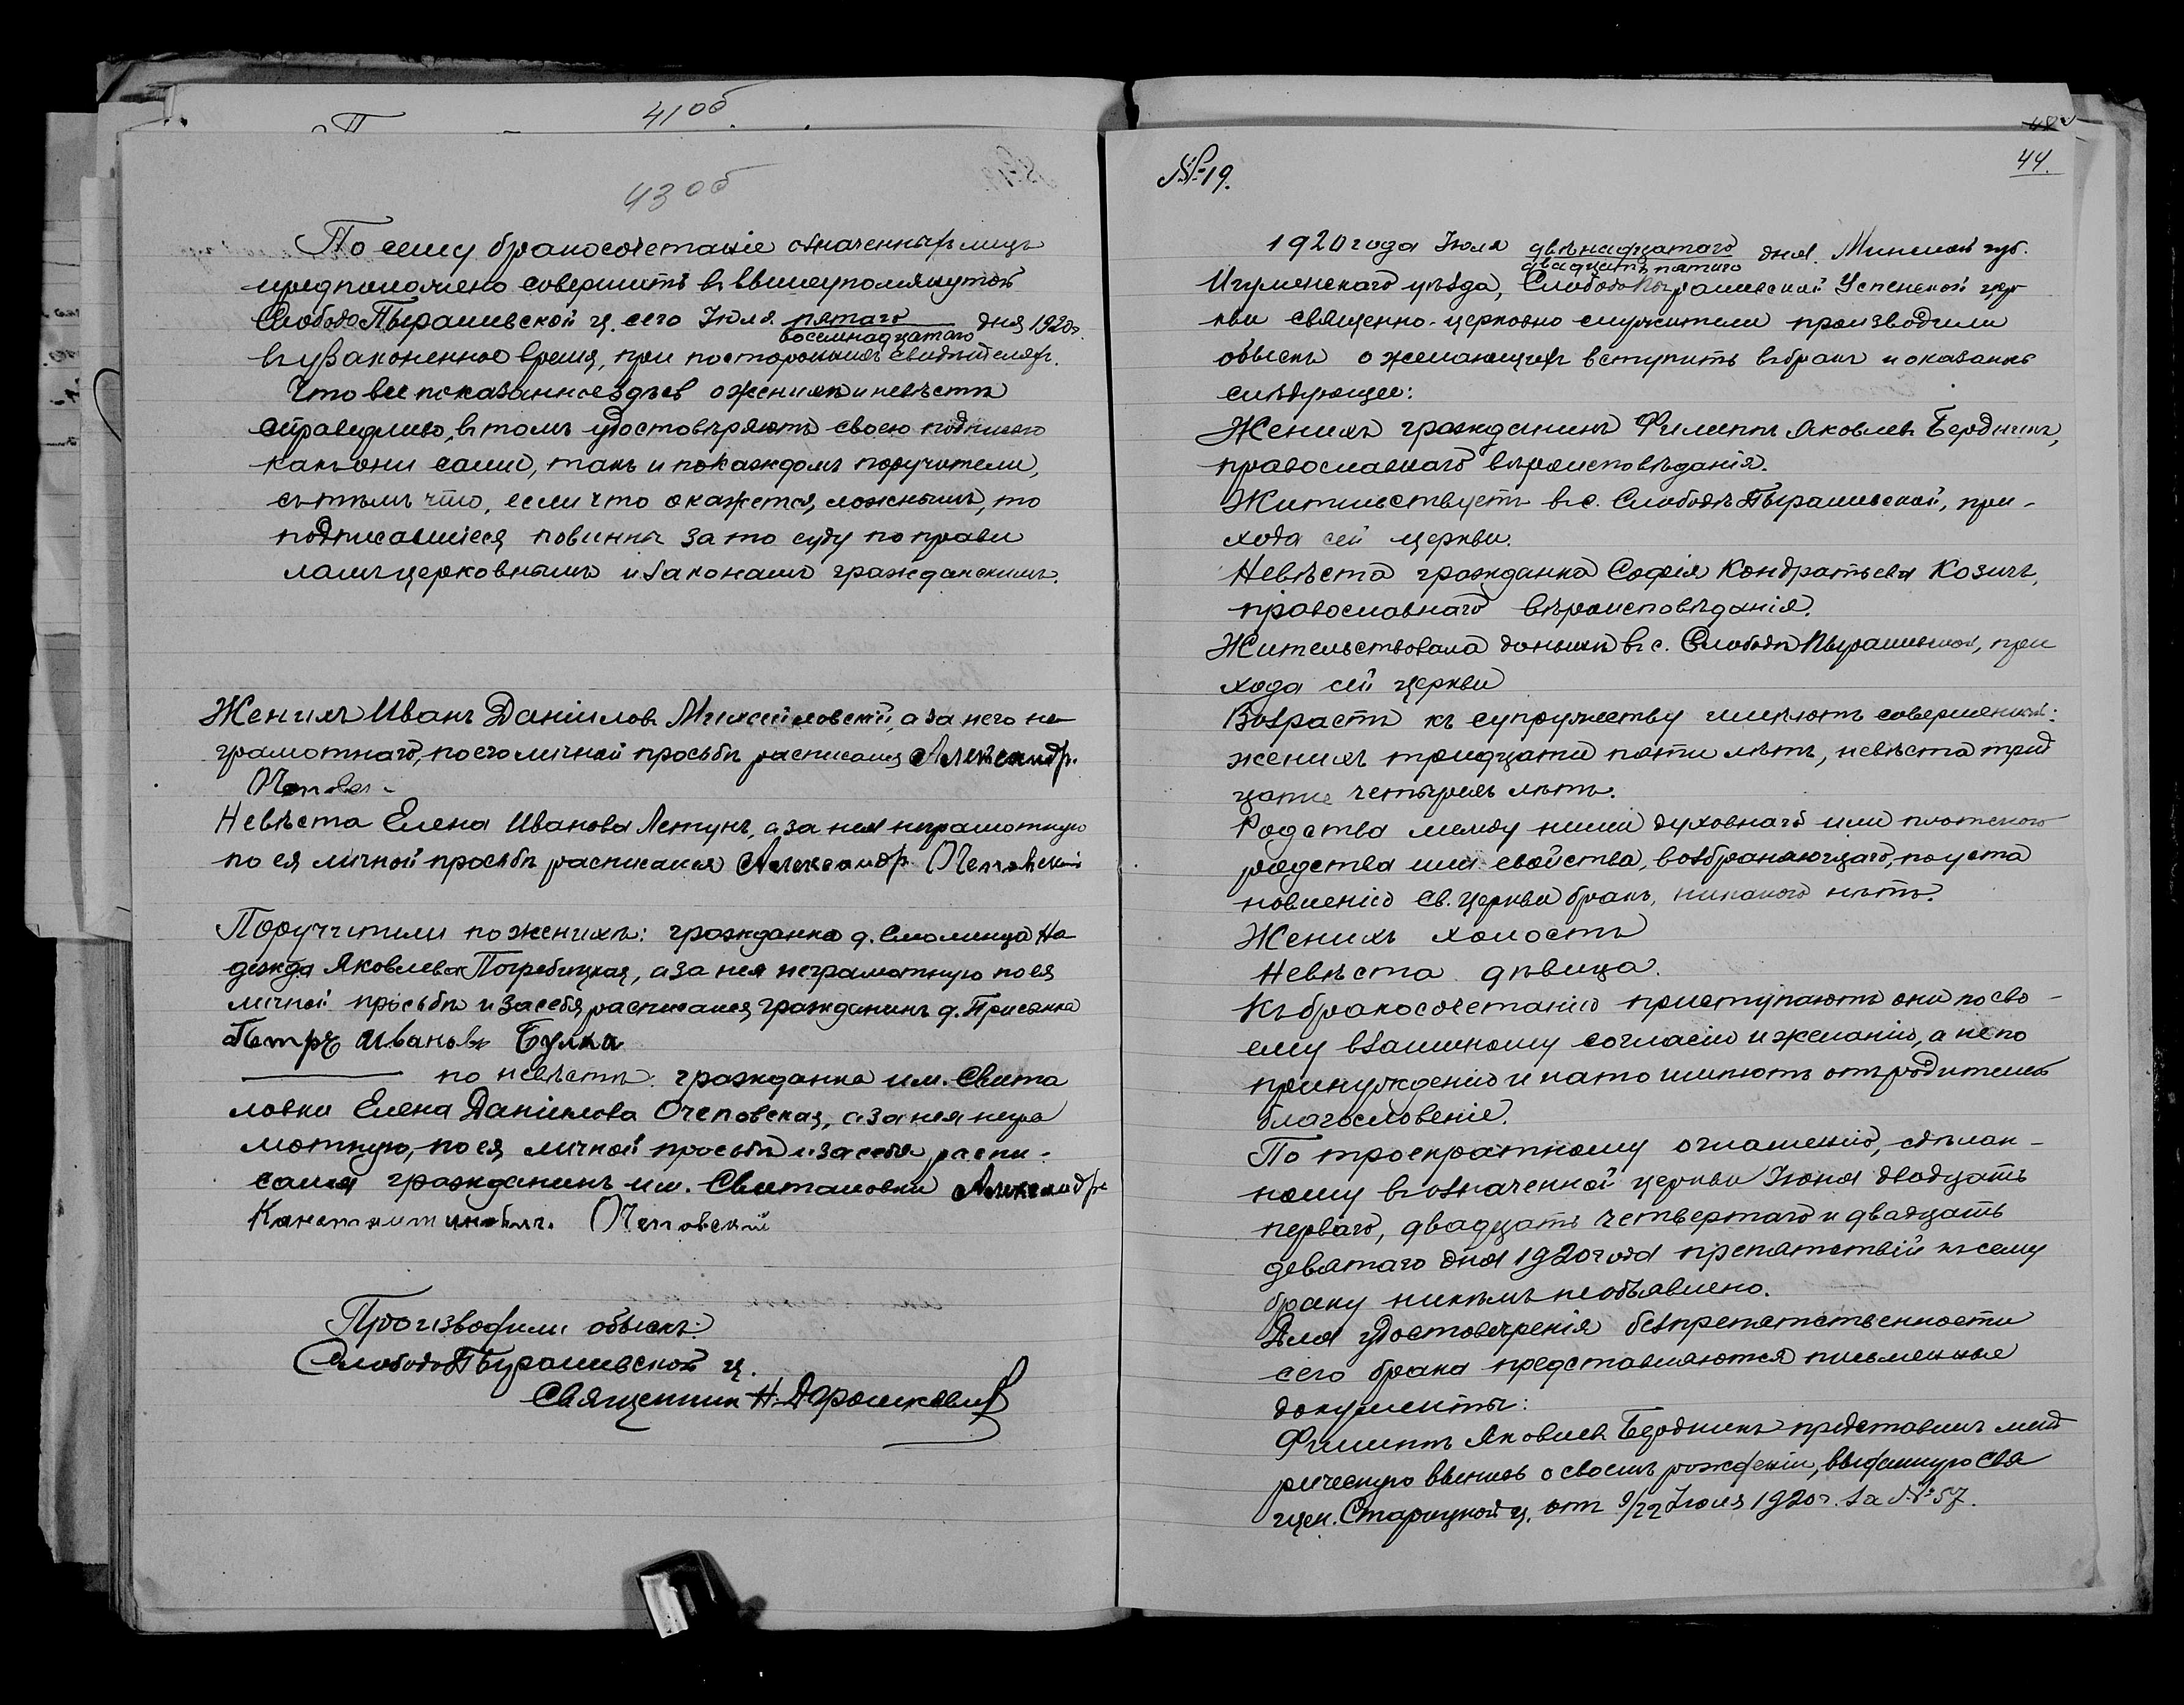 41об
43об
По сему бракосочетаніе означенныхъ лицъ
предположено совершить въ вышеупомянутой
Слободо Пырашевской ц. сего Іюля пятаго дня 1920г.
восемнадцатаго
въ узаконенное время, при постороннихъ свидѣтеляхъ.
Что все показанное здѣсь о женихѣ и невѣстѣ
справедливо, въ томъ удостовѣряютъ своею подписью
какъ они сами, такъ и по каждомъ поручители,
съ тѣмъ что, если что окажется ложнымъ, то
подписавшіеся повинны за то суду по прави
ламъ церковнымъ и законамъ гражданскимъ.
Женихъ Иванъ Даніиловъ Михайловскій, а за него не
грамотнаго, по его личной просьбѣ расписался Александръ
Невѣста Елена Иванова Летунъ, а за нея неграмотную
по ея личной просьбѣ расписался Александръ Очеповскій
Поручители по женихѣ: гражданка д. Смолница На
дежда Яковлева Погребицкая, а за нея неграмотную по ея
личной просьбѣ и за себя расписался гражданинъ д. Присынка
Петръ Ивановъ Булка
по невѣстѣ: гражданка им. Свита
ловки Елена Даніилова Очеповская, а за нея негра
мотную, по ея личной просьбѣ и за себя распи-
сался гражданинъ им. Свиталовки Александръ
Константиновичъ Очеповскій
Производили обыскъ:
Слободо Пырашевской ц.
Священник Н. Дорошкевич
№ 19.
44.
1920 года Іюля двѣнадцатаго дня. Минской губ.
двадцать пятаго
Игуменскаго уѣзда, Слободо Пырашевской Успенской цер
кви священно-церковно служители производили
обыскъ о желающихъ вступить въ бракъ и оказалось
слѣдующее:
Женихъ гражданинъ Филиппъ Яковлевъ Бердникъ,
православнаго вѣроисповѣданія.
Жительствуетъ въ с. Слободѣ Пырашевской, при-
хода сей церкви.
Невѣста гражданка Софія Кондратьева Козичъ,
православнаго вѣроисповѣданія.
Жительствовала донынѣ въ с. Слободѣ Пырашевской, при
хода сей церкви
Возрастъ къ супружеству имѣютъ совершенный:
женихъ тридцати пяти лѣтъ, невѣста трид
цати четырехъ лѣтъ.
Родства между ними духовнаго или плотского
родства или свойства, возбраняющаго, по уста
новленію св. церкви бракъ, никакого нѣтъ.
Женихъ холостъ
Невѣста дѣвица.
Къ бракосочетанію приступаютъ они по сво-
ему взаимному согласію и желанію, а не по
принужденію и на то имѣютъ отъ родителей
благословеніе.
По троекратному оглашенію, сдѣлан-
ному въ означенной церкви Іюня двадцать
перваго, двадцать четвертаго и двадцать
девятаго дня 1920 года препятствій къ сему
браку никѣмъ не объявлено.
Для удостовѣренія безпрепятственности
сего брака представляются письменные
документы:
Филиппъ Яковлевъ Бердникъ представилъ мет
рическую выпись о своемъ рожденіи, выданную свя
щен. Старицкой ц. отъ 9/22 Іюля 1920 г. за № 57.